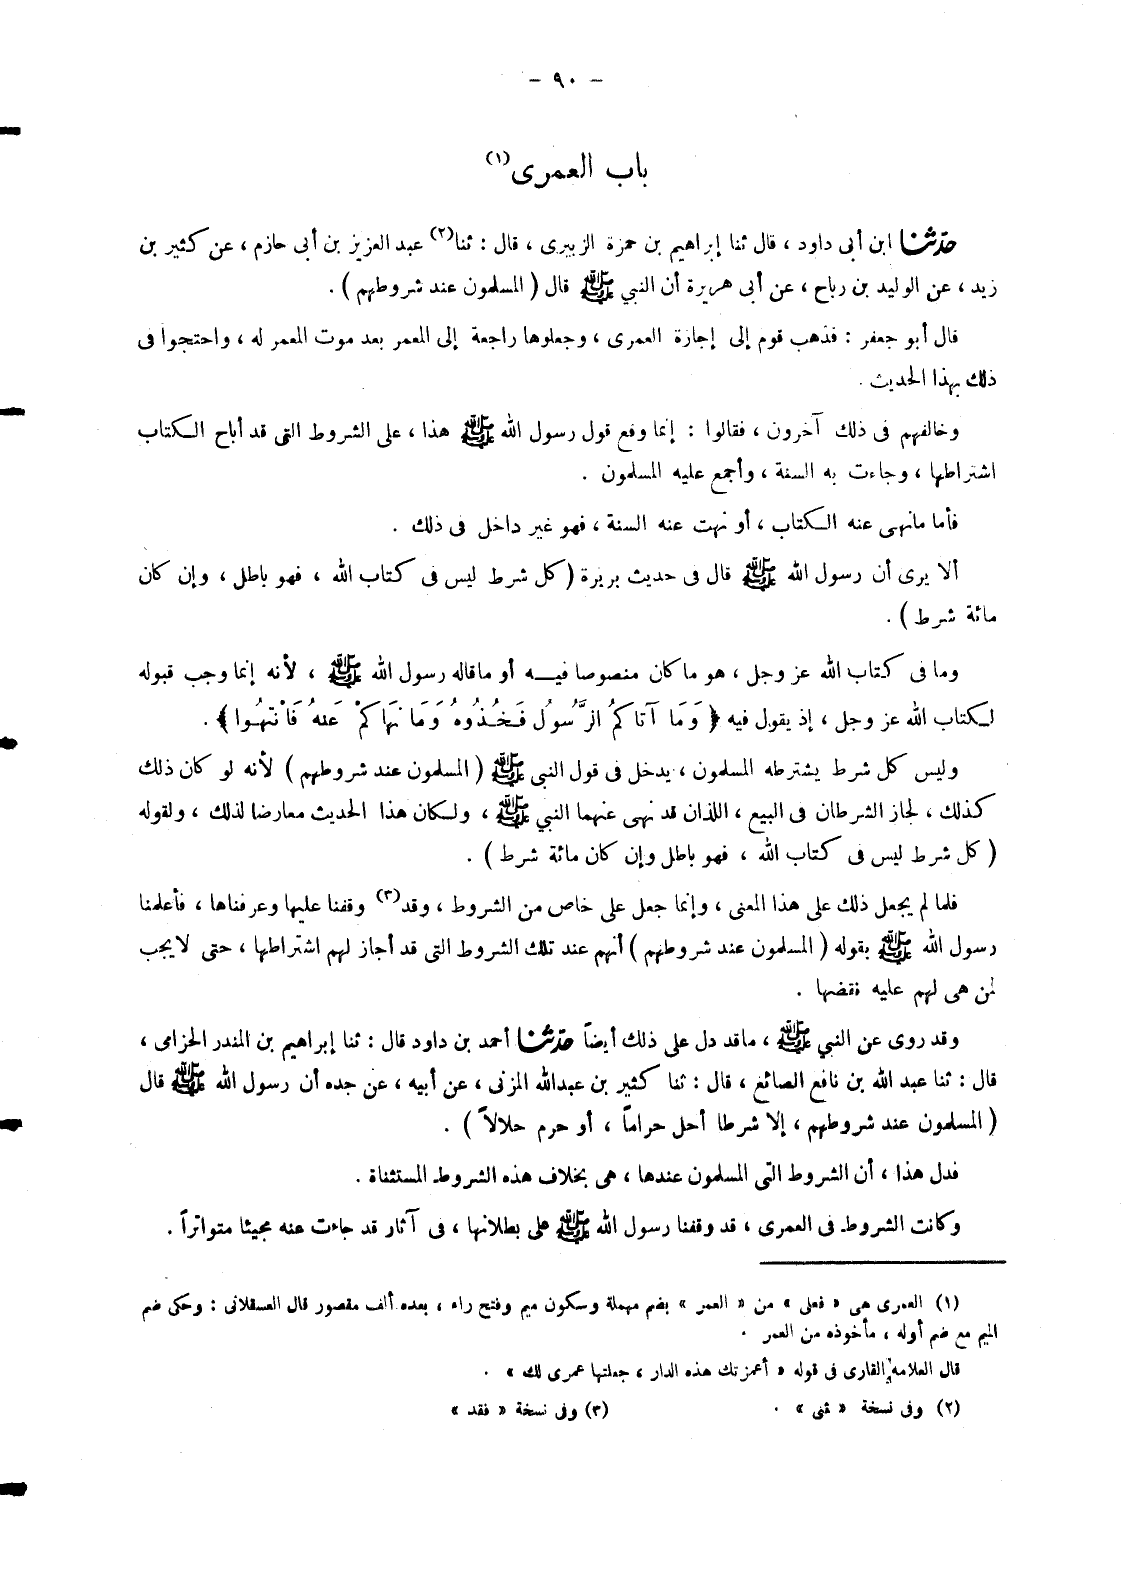 - ٩٠ -
باب العمرى(١)
حدثنا ابن أبى داود ، قال ثنا إبراهيم بن حمزة الزبيرى ، قال : ثنا(٢) عبد العزيز بن أبى حازم ، عن كثير بن
زيد ، عن الوليد بن رباح ، عن أبى هريرة أن النبي ﷺ قال ( المسلمون عند شروطهم ) .
قال أبو جعفر : فذهب قوم إلى إجازة العمرى ، وجعلوها راجعة إلى المعمر بعد موت المعمر له ، واحتجوا فى
ذلك بهذا الحديث .
وخالفهم فى ذلك آخرون ، فقالوا : إنما وقع قول رسول الله ﷺ هذا ، على الشروط التى قد أباح الكتاب
اشتراطها ، وجاءت به السنة ، وأجمع عليه المسلمون .
فأما مانهى عنه الكتاب ، أو نهت عنه السنة ، فهو غير داخل فى ذلك .
ألا يرى أن رسول الله ﷺ قال فى حديث بريرة ( كل شرط ليس فى كتاب الله ، فهو باطل ، وإن كان
مائة شرط ) .
وما فى كتاب الله عز وجل ، هو ماكان منصوصا فيه أو ماقاله رسول الله ﷺ ، لأنه إنما وجب قبوله
لكتاب الله عز وجل ، إذ يقول فيه ﴿ وَمَا آتَاكُمُ الرَّسُولُ فَخُذُوهُ وَمَا نَهَاكُمْ عَنْهُ فَانْتَهُوا ﴾ .
وليس كل شرط يشترطه المسلمون ، يدخل فى قول النبى ﷺ ( المسلمون عند شروطهم ) لأنه لو كان ذلك
كذلك ، لجاز الشرطان فى البيع ، اللذان قد نهى عنهما النبي ﷺ ، ولكان هذا الحديث معارضا لذلك ، ولقوله
( كل شرط ليس فى كتاب الله ، فهو باطل وإن كان مائة شرط ) .
فلما لم يجعل ذلك على هذا المعنى ، وإنما جعل على خاص من الشروط ، وقد(٣) وقفنا عليها وعرفناها ، فأعلمنا
رسول الله ﷺ بقوله ( المسلمون عند شروطهم ) أنهم عند تلك الشروط التى قد أجاز لهم اشتراطها ، حتى لايجب
لمن هى لهم عليه نقضها .
وقد روى عن النبي ﷺ ، ماقد دل على ذلك أيضاً حدثنا أحمد بن داود قال : ثنا إبراهيم بن المنذر الحزامى ،
قال : ثنا عبد الله بن نافع الصائغ ، قال : ثنا كثير بن عبدالله المزنى ، عن أبيه ، عن جده أن رسول الله ﷺ قال
( المسلمون عند شروطهم ، إلا شرطا أحل حراماً ، أو حرم حلالاً ) .
فدل هذا ، أن الشروط التى المسلمون عندها ، هى بخلاف هذه الشروط المستثناة .
وكانت الشروط فى العمرى ، قد وقفنا رسول الله ﷺ على بطلانها ، فى آثار قد جاءت عنه مجيئا متواتراً .
(١) العمرى هى « فعلى » من « العمر » بضم مهملة وسكون ميم وفتح راء ، بعده ألف مقصور قال العسقلانى : وحكى ضم
الميم مع ضم أوله ، مأخوذه من العمر .
قال العلامة القارى فى قوله « أعمرتك هذه الدار ، جعلتها عمرى لك » .
(٢) وفى نسخة « ثنى » . (٣) وفى نسخة « فقد »